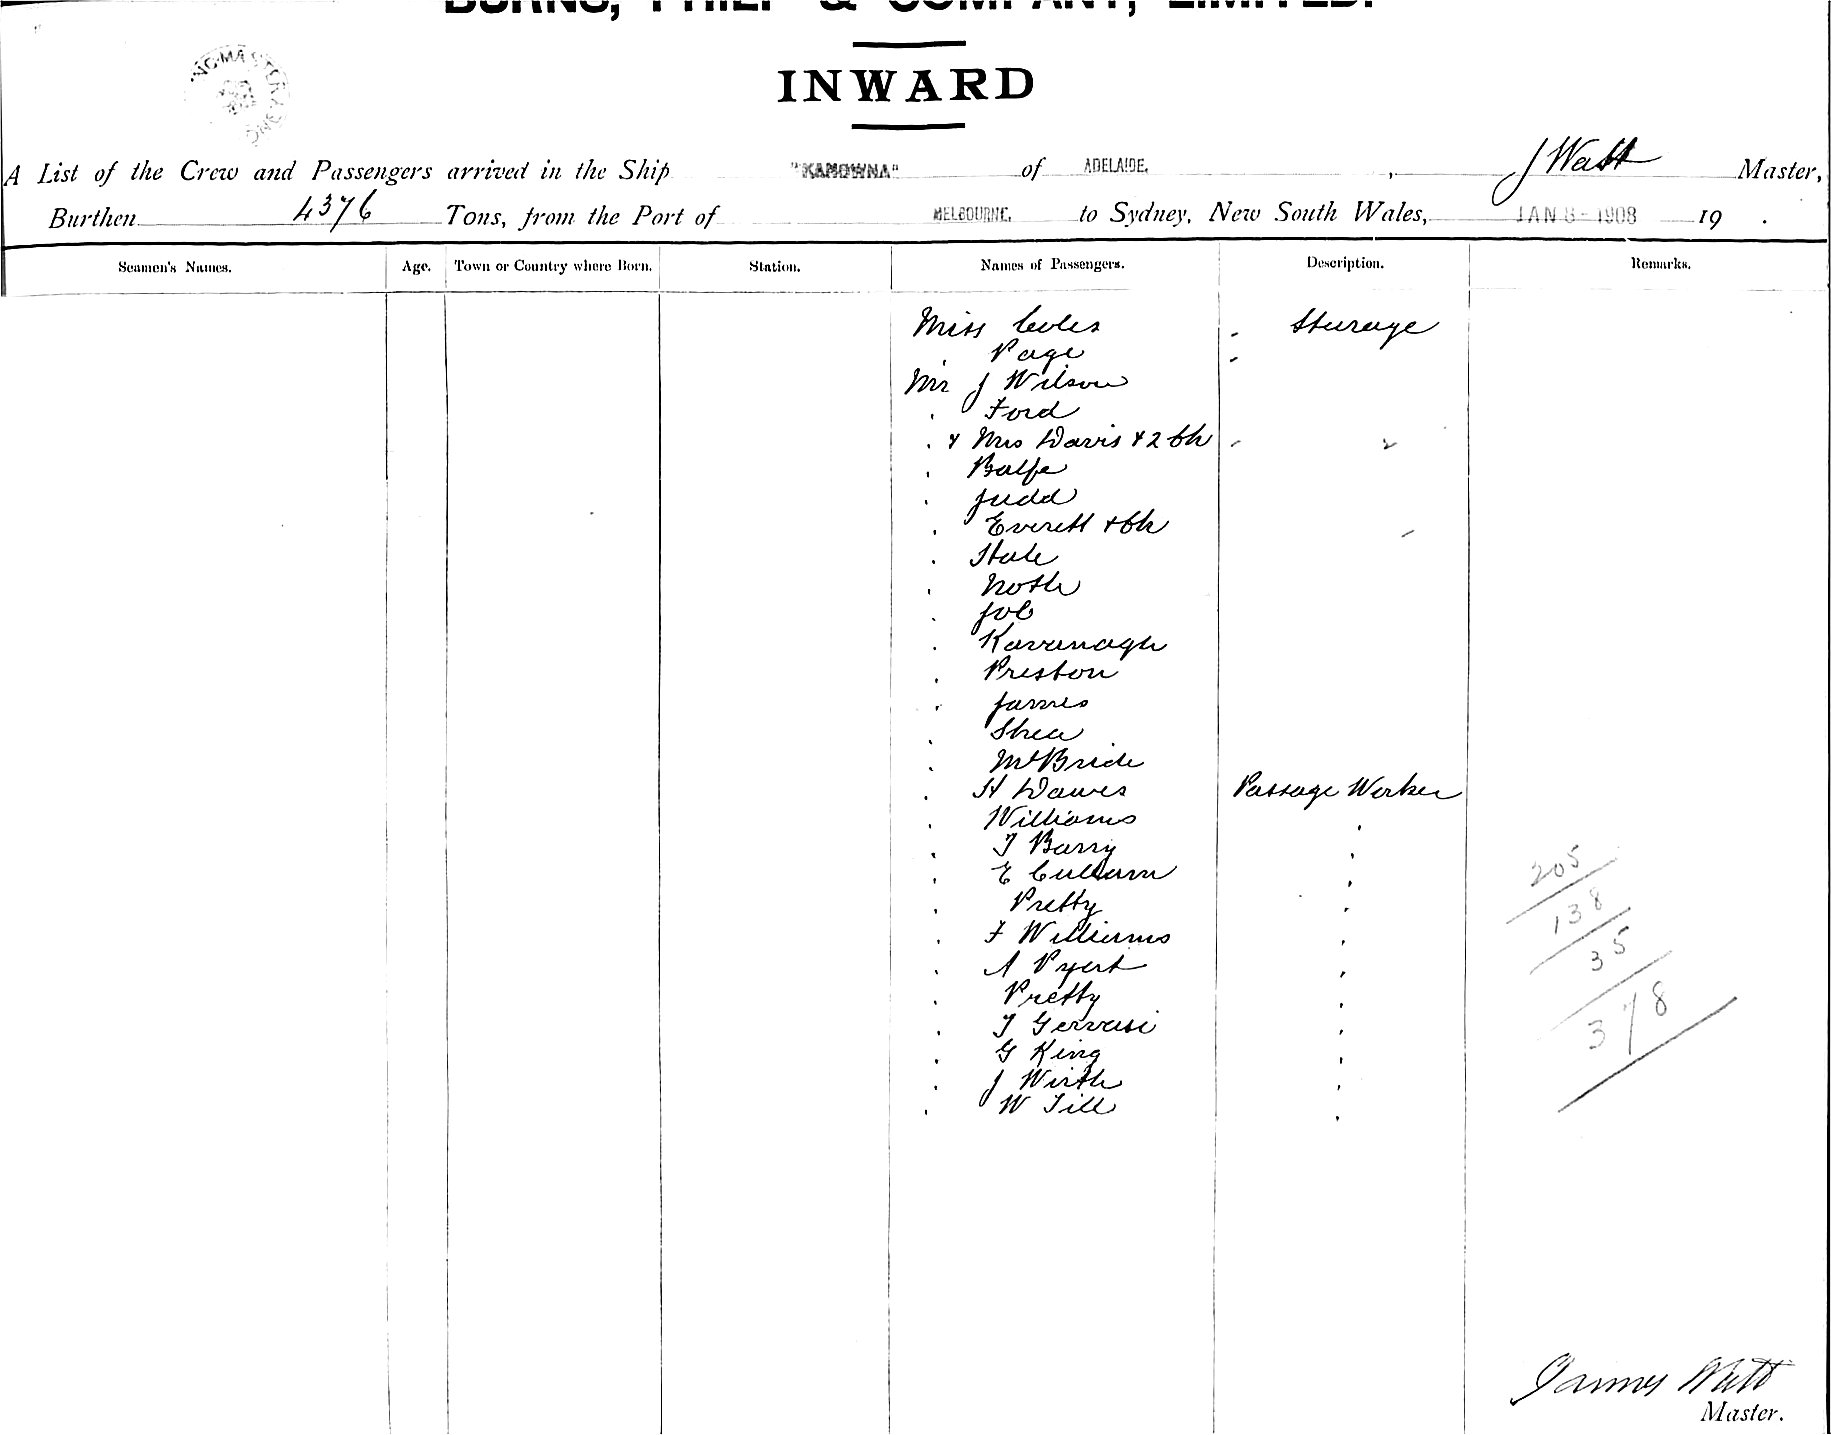 BURNS, PHILP & COMPANY, LIMITED.
INWARD
A List of the Crew and Passengers arrived in the Ship "KANOWNA" of ADELAIDE, J Watt Master,
Burthen 4376 Tons, from the Port of MELBOURNE, to Sydney, New South Wales, JAN 8 - 1908 19 .
Seamen's Names. Age. Town or Country where Born. Station. Names of Passengers. Description. Remarks.
Miss Coles Steerage
Page
Mr J Wilson
Ford
& Mrs Davis & 2 Ch
Balfe
Judd
Everett & Ch
State
Noth
Job
Kavanagh
Preston
James
Shea
McBride
H Dawes Passage Worker
Williams
T Barry
E Cullum
205
Pretty
138
F Williams
35
A Pyert
Pretty
378
T Gervasi
G King
J Wirth
W Till
James Watt
Master.